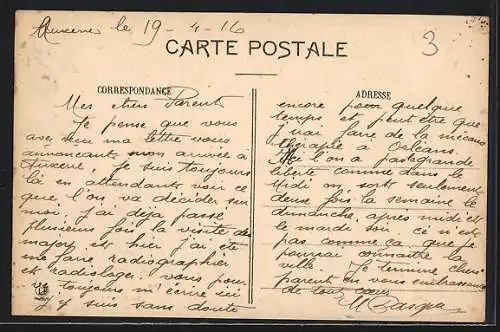 Auxerre le 19 - 4 - 16
3
CARTE POSTALE
CORRESPONDANCE
Mes chers Parents
Je pense que vous
avez reçu ma lettre vous
annoncant mon arrivée à
Auxerre, Je suis toujours
là en attendant voir ce
que l'on va décider sur
moi, j'ai déjà passé
plusieurs fois la visite des
majors et hier j'ai été
me faire radiographier
et radiologer. vous pouvez
toujours m'écrire ici
j'y suis sans doute
ADRESSE
encore pour quelque
temps et peut être que
j'irai faire de la mécano
thérapie à Orléans.
Ici l'on a pas grande
liberté comme dans le
Midi on sort seulement
deux fois la semaine le
dimanche, après midi et
le mardi soir. ce n'est
pas comme ça que je
pourrai connaitre la
ville. Je termine chers
parents en vous embrassant
de tout cœur